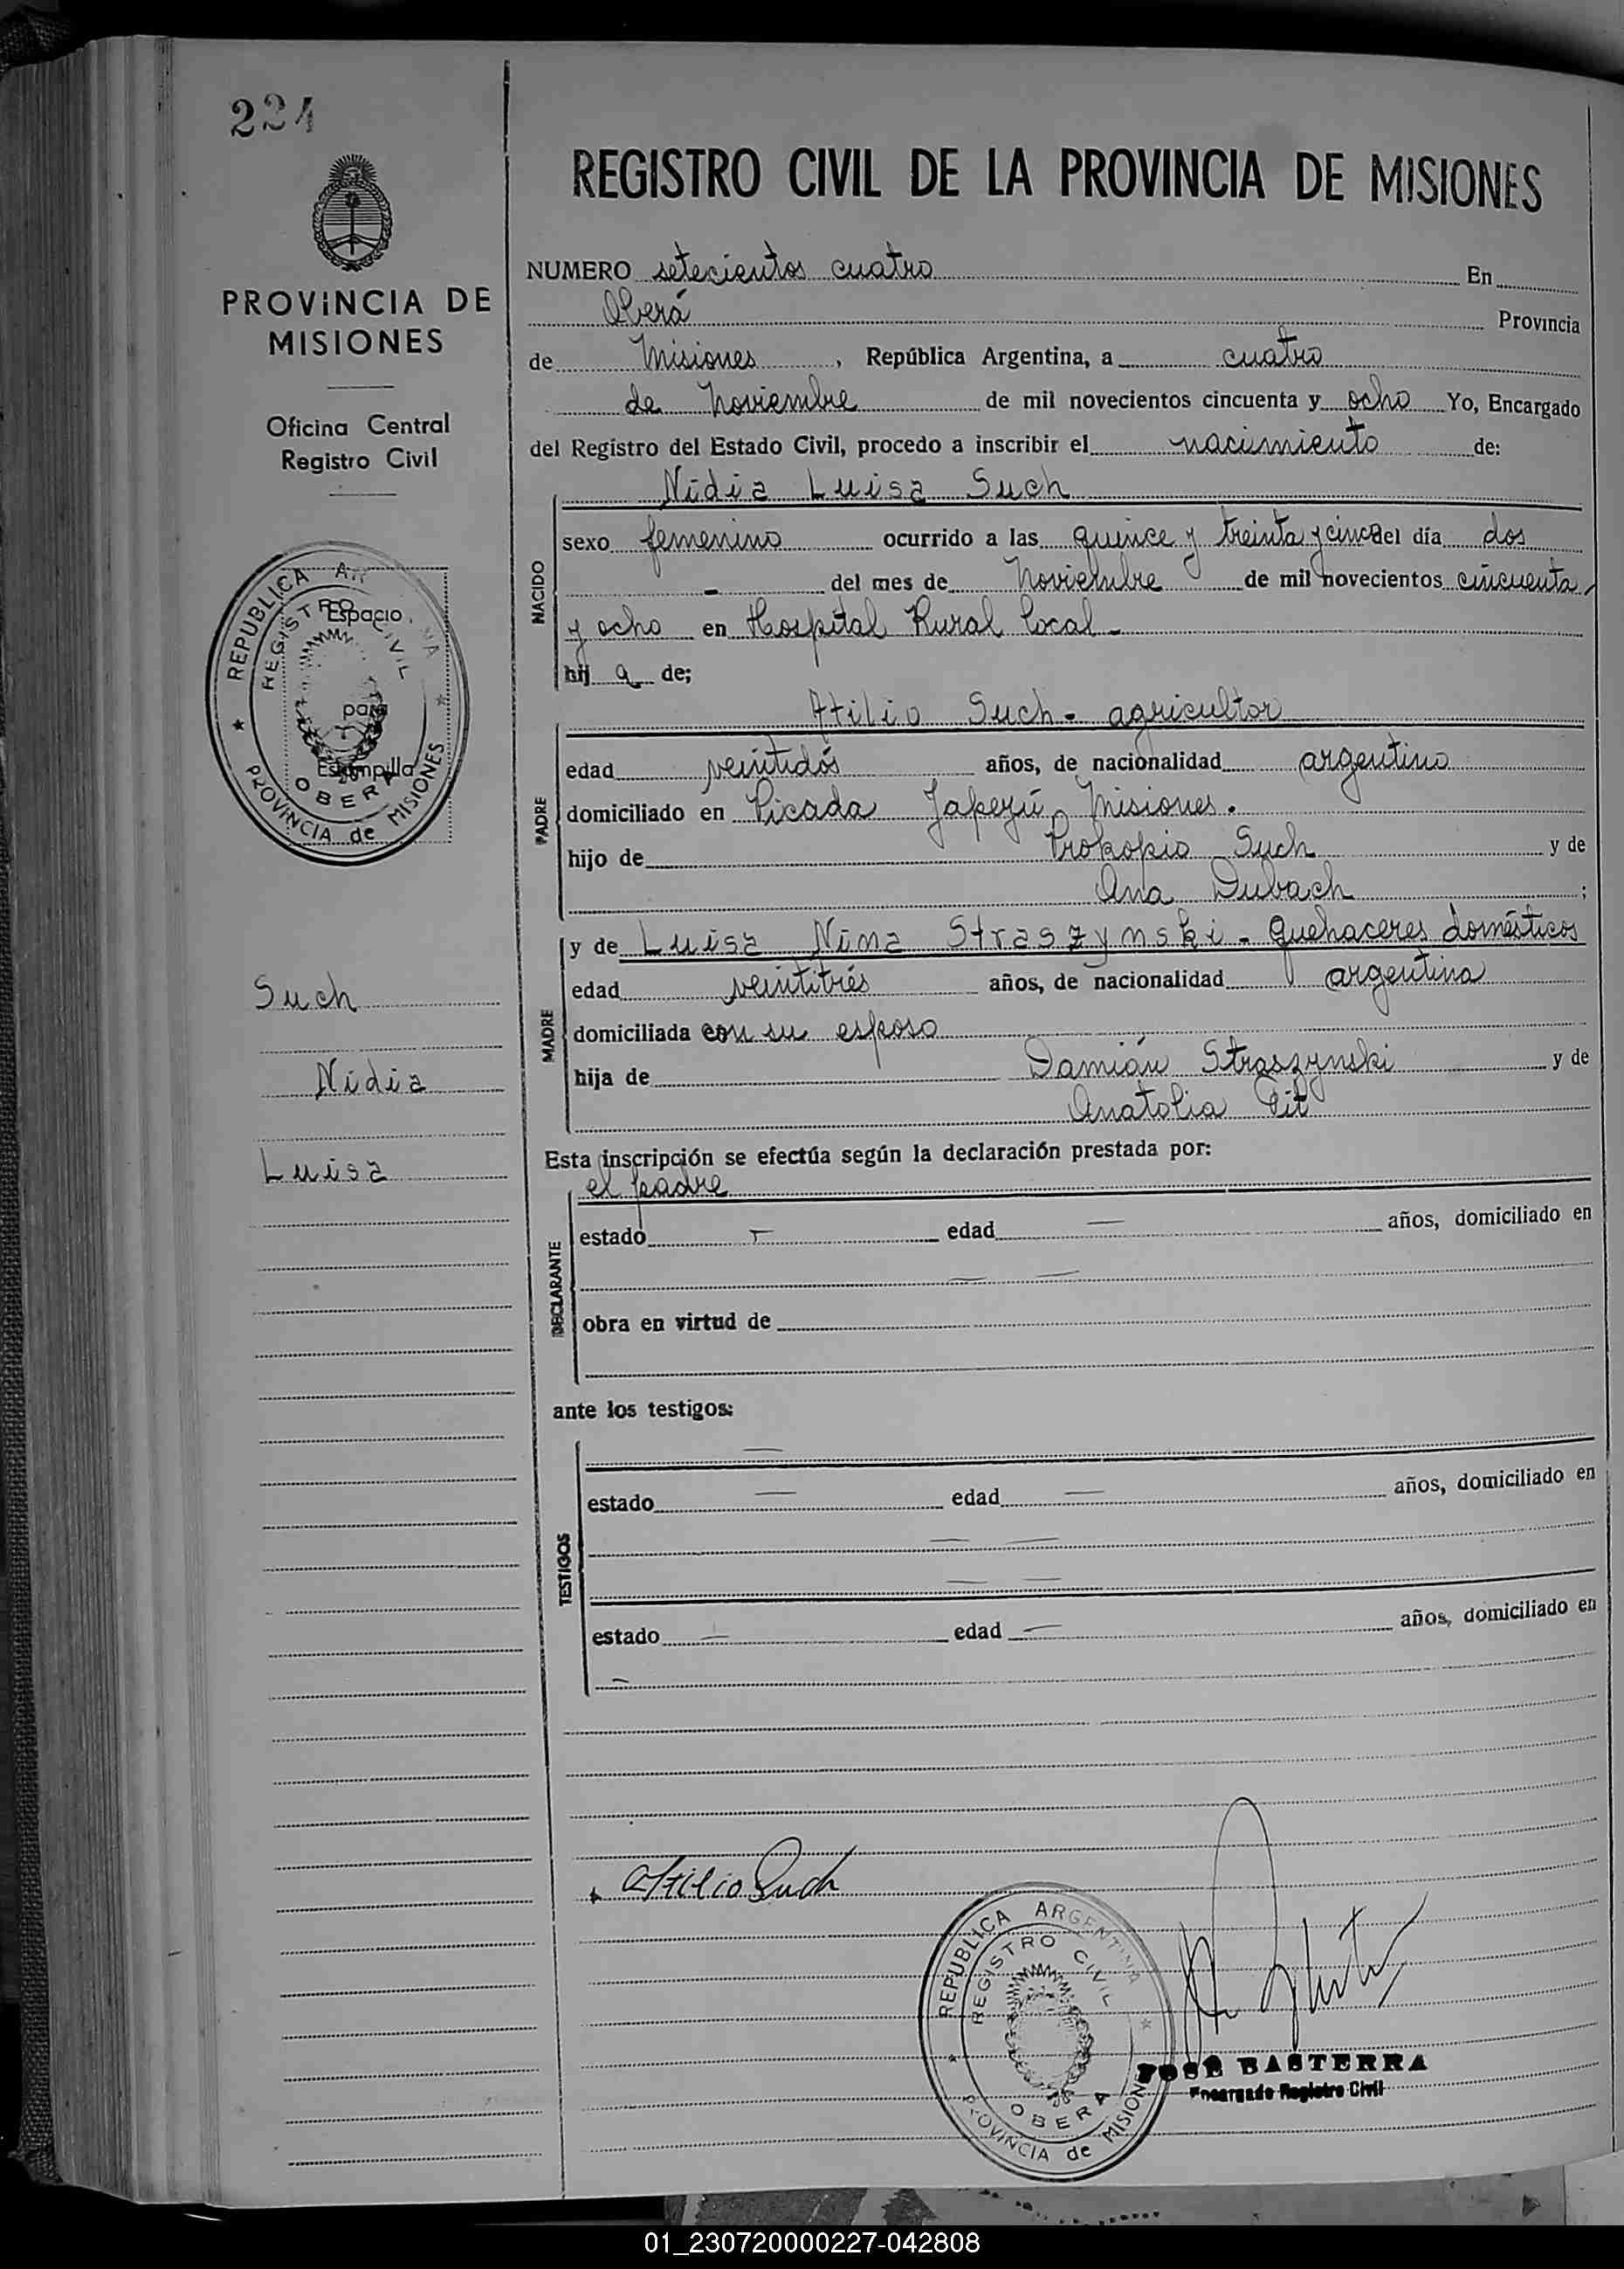 224
PROVINCIA DE
MISIONES
Oficina Central
Registro Civil
REPUBLICA AR
REGISTRO CIVIL
OBERA
PROVINCIA de MISIONES
Espacio
para
Estampilla
Such
Nidia
Luisa
REGISTRO CIVIL DE LA PROVINCIA DE MISIONES
NUMERO setecientos cuatro En
Oberá Provincia
de Misiones, República Argentina, a cuatro
de Noviembre de mil novecientos cincuenta y ocho Yo, Encargado
del Registro del Estado Civil, procedo a inscribir el nacimiento de:
Nidia Luisa Such
NACIDO
sexo femenino ocurrido a las quince y treinta y cinco del día dos
- del mes de Noviembre de mil novecientos cincuenta
y ocho en Hospital Rural local.-
hij a de;
Atilio Such - agricultor
PADRE
edad veintidós años, de nacionalidad argentino
domiciliado en Picada Japeyú, Misiones.
hijo de Prokopio Such y de
Ana Dubach ;
y de Luisa Nina Straszynski - Quehaceres domésticos
MADRE
edad veintitrés años, de nacionalidad argentina
domiciliada con su esposo
hija de Damián Straszynski y de
Anatolia Pit
Esta inscripción se efectúa según la declaración prestada por:
el padre
DECLARANTE
estado - edad — años, domiciliado en
— —
obra en virtud de
ante los testigos:
—
TESTIGOS
estado — edad — años, domiciliado en
— —
— —
estado — edad — años, domiciliado en
—
Atilio Such
REPUBLICA ARGENTINA
REGISTRO CIVIL
OBERA
PROVINCIA de MISION
JOSE BASTERRA
Encargado Registro Civil
01_230720000227-042808